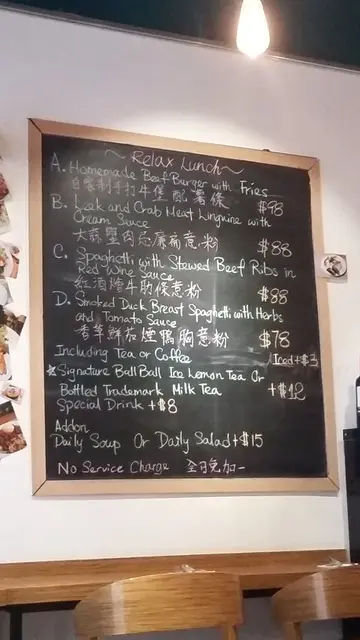 ~ Relax Lunch ~
A. Homemade Beef Burger with Fries
自家制手打牛堡配薯條 $98
B. Leek and Crab Meat Linguine with
Cream Sauce
大蒜蟹肉忌廉扁意粉 $88
C. Spaghetti with Stewed Beef Ribs in
Red Wine Sauce
紅酒燴牛肋條意粉 $88
D. Smoked Duck Breast Spaghetti with Herbs
and Tomato Sauce
香草鮮茄煙鴨胸意粉 $78
Including Tea or Coffee / Iced +$3
*Signature Ball Ball Ice Lemon Tea Or
Bottled Trademark Milk Tea +$12
Special Drink +$8
Addon
Daily Soup Or Daily Salad +$15
No Service Charge 全日免加一